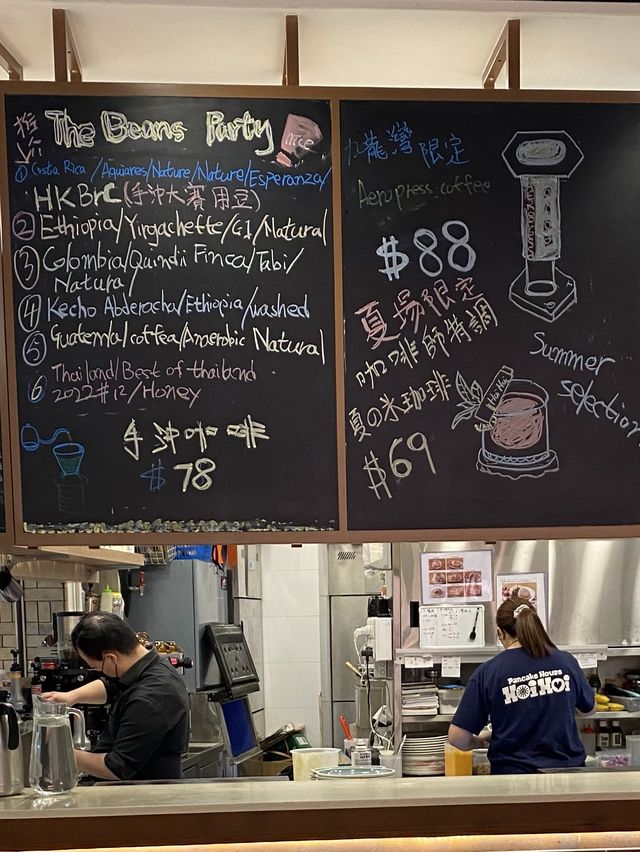 推介
The Beans Party
nice
① Costa Rica / Aquiares/Nature/Nature/Esperanza/
HKBrC (手沖大賽用豆)
② Ethiopia/Yirgacheffe/G1/Natural
③ Colombia/Quindii Finca/Tabi/
Natural/
④ Kecho Aberacha/Ethiopia/washed
⑤ Guatemla/coffea/Anaerobic Natural
⑥ Thailand/Best of thailand
2022#12/Honey
手沖咖啡
$78
九龍灣限定
Aeropress coffee
$88
夏場限定
咖啡師特調
夏の氷珈琲
$69
HoiHoi
Summer
selection
Pancake House
HoiHoi